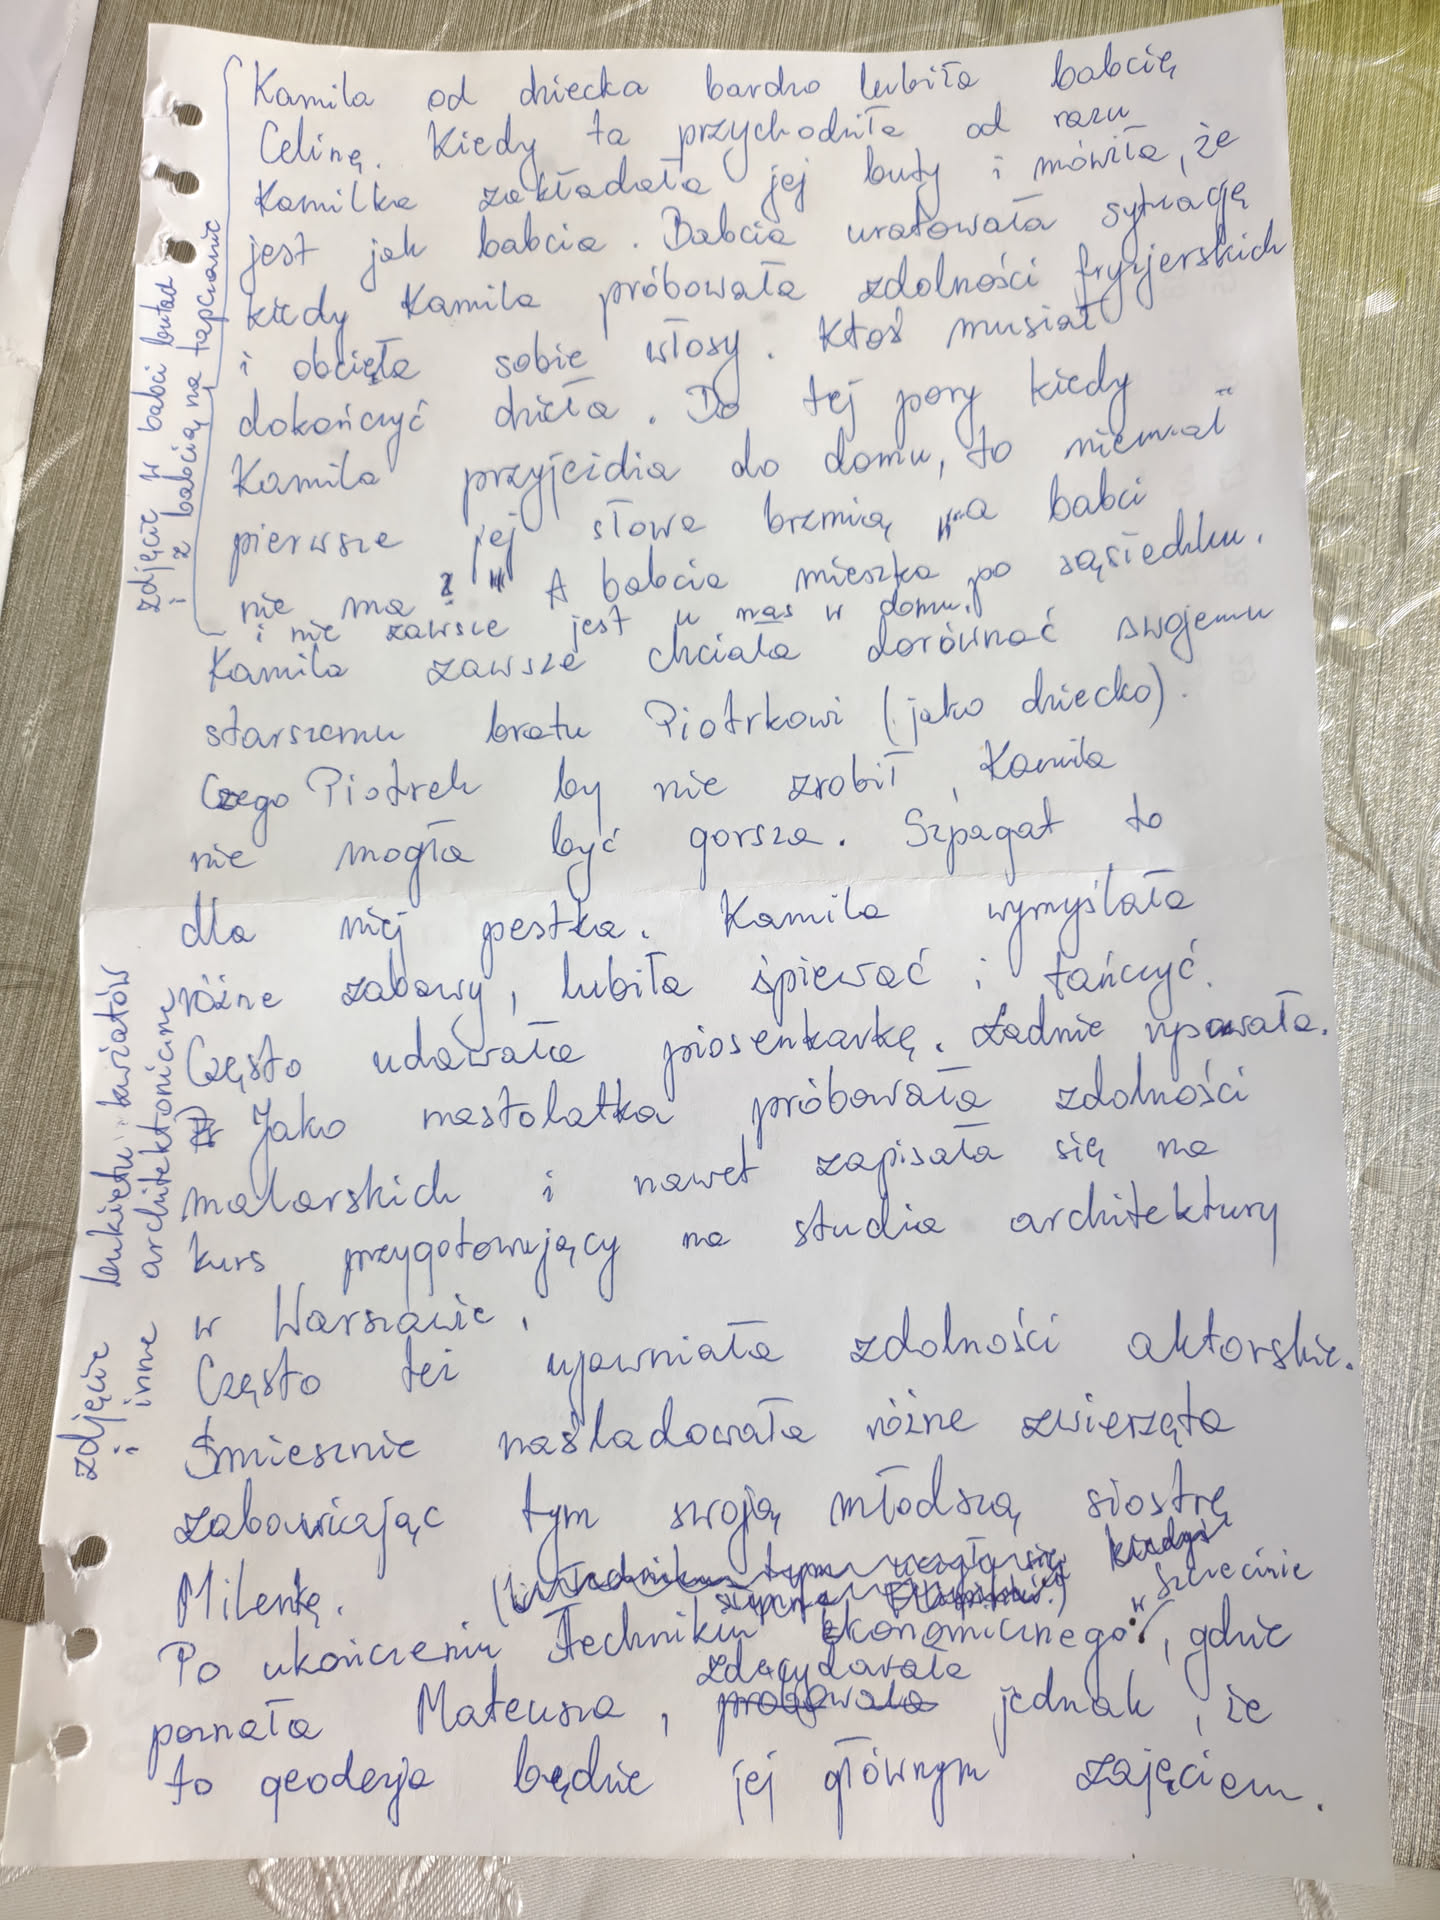 Kamila od dziecka bardzo lubiła babcię
Celinę. Kiedy ta przychodziła od razu
Kamilka zakładała jej buty i mówiła, że
jest jak babcia. Babcia uratowała sytuację
kiedy Kamila próbowała zdolności fryzjerskich
i obcięła sobie włosy. Ktoś musiał
dokończyć dzieła. Do tej pory kiedy
Kamila przyjeżdża do domu, to niemal
pierwsze jej słowa brzmią "a babci
nie ma?" A babcia mieszka po sąsiedzku.
i nie zawsze jest u nas w domu.
Kamila zawsze chciała dorównać swojemu
starszemu bratu Piotrkowi (jako dziecko).
Czego Piotrek by nie zrobił, Kamila
nie mogła być gorsza. Szpagat to
dla niej pestka. Kamila wymyślała
różne zabawy, lubiła śpiewać i tańczyć.
Często udawała piosenkarkę. Ładnie rysowała.
Jako nastolatka próbowała zdolności
malarskich i nawet zapisała się na
kurs przygotowujący na studia architektury
w Warszawie.
Często też ujawniała zdolności aktorskie.
Śmiesznie naśladowała różne zwierzęta
zabawiając tym swoją młodszą siostrę
Milenkę.
Po ukończeniu Techniku Ekonomicznego w Szczecinie, gdzie
poznała Mateusza, zdecydowała jednak, że
to geodezja będzie jej głównym zajęciem.
zdjęcie w babci butach
i z babcią na tapczanie
zdjęcie bukietu kwiatów
i inne architektoniczne